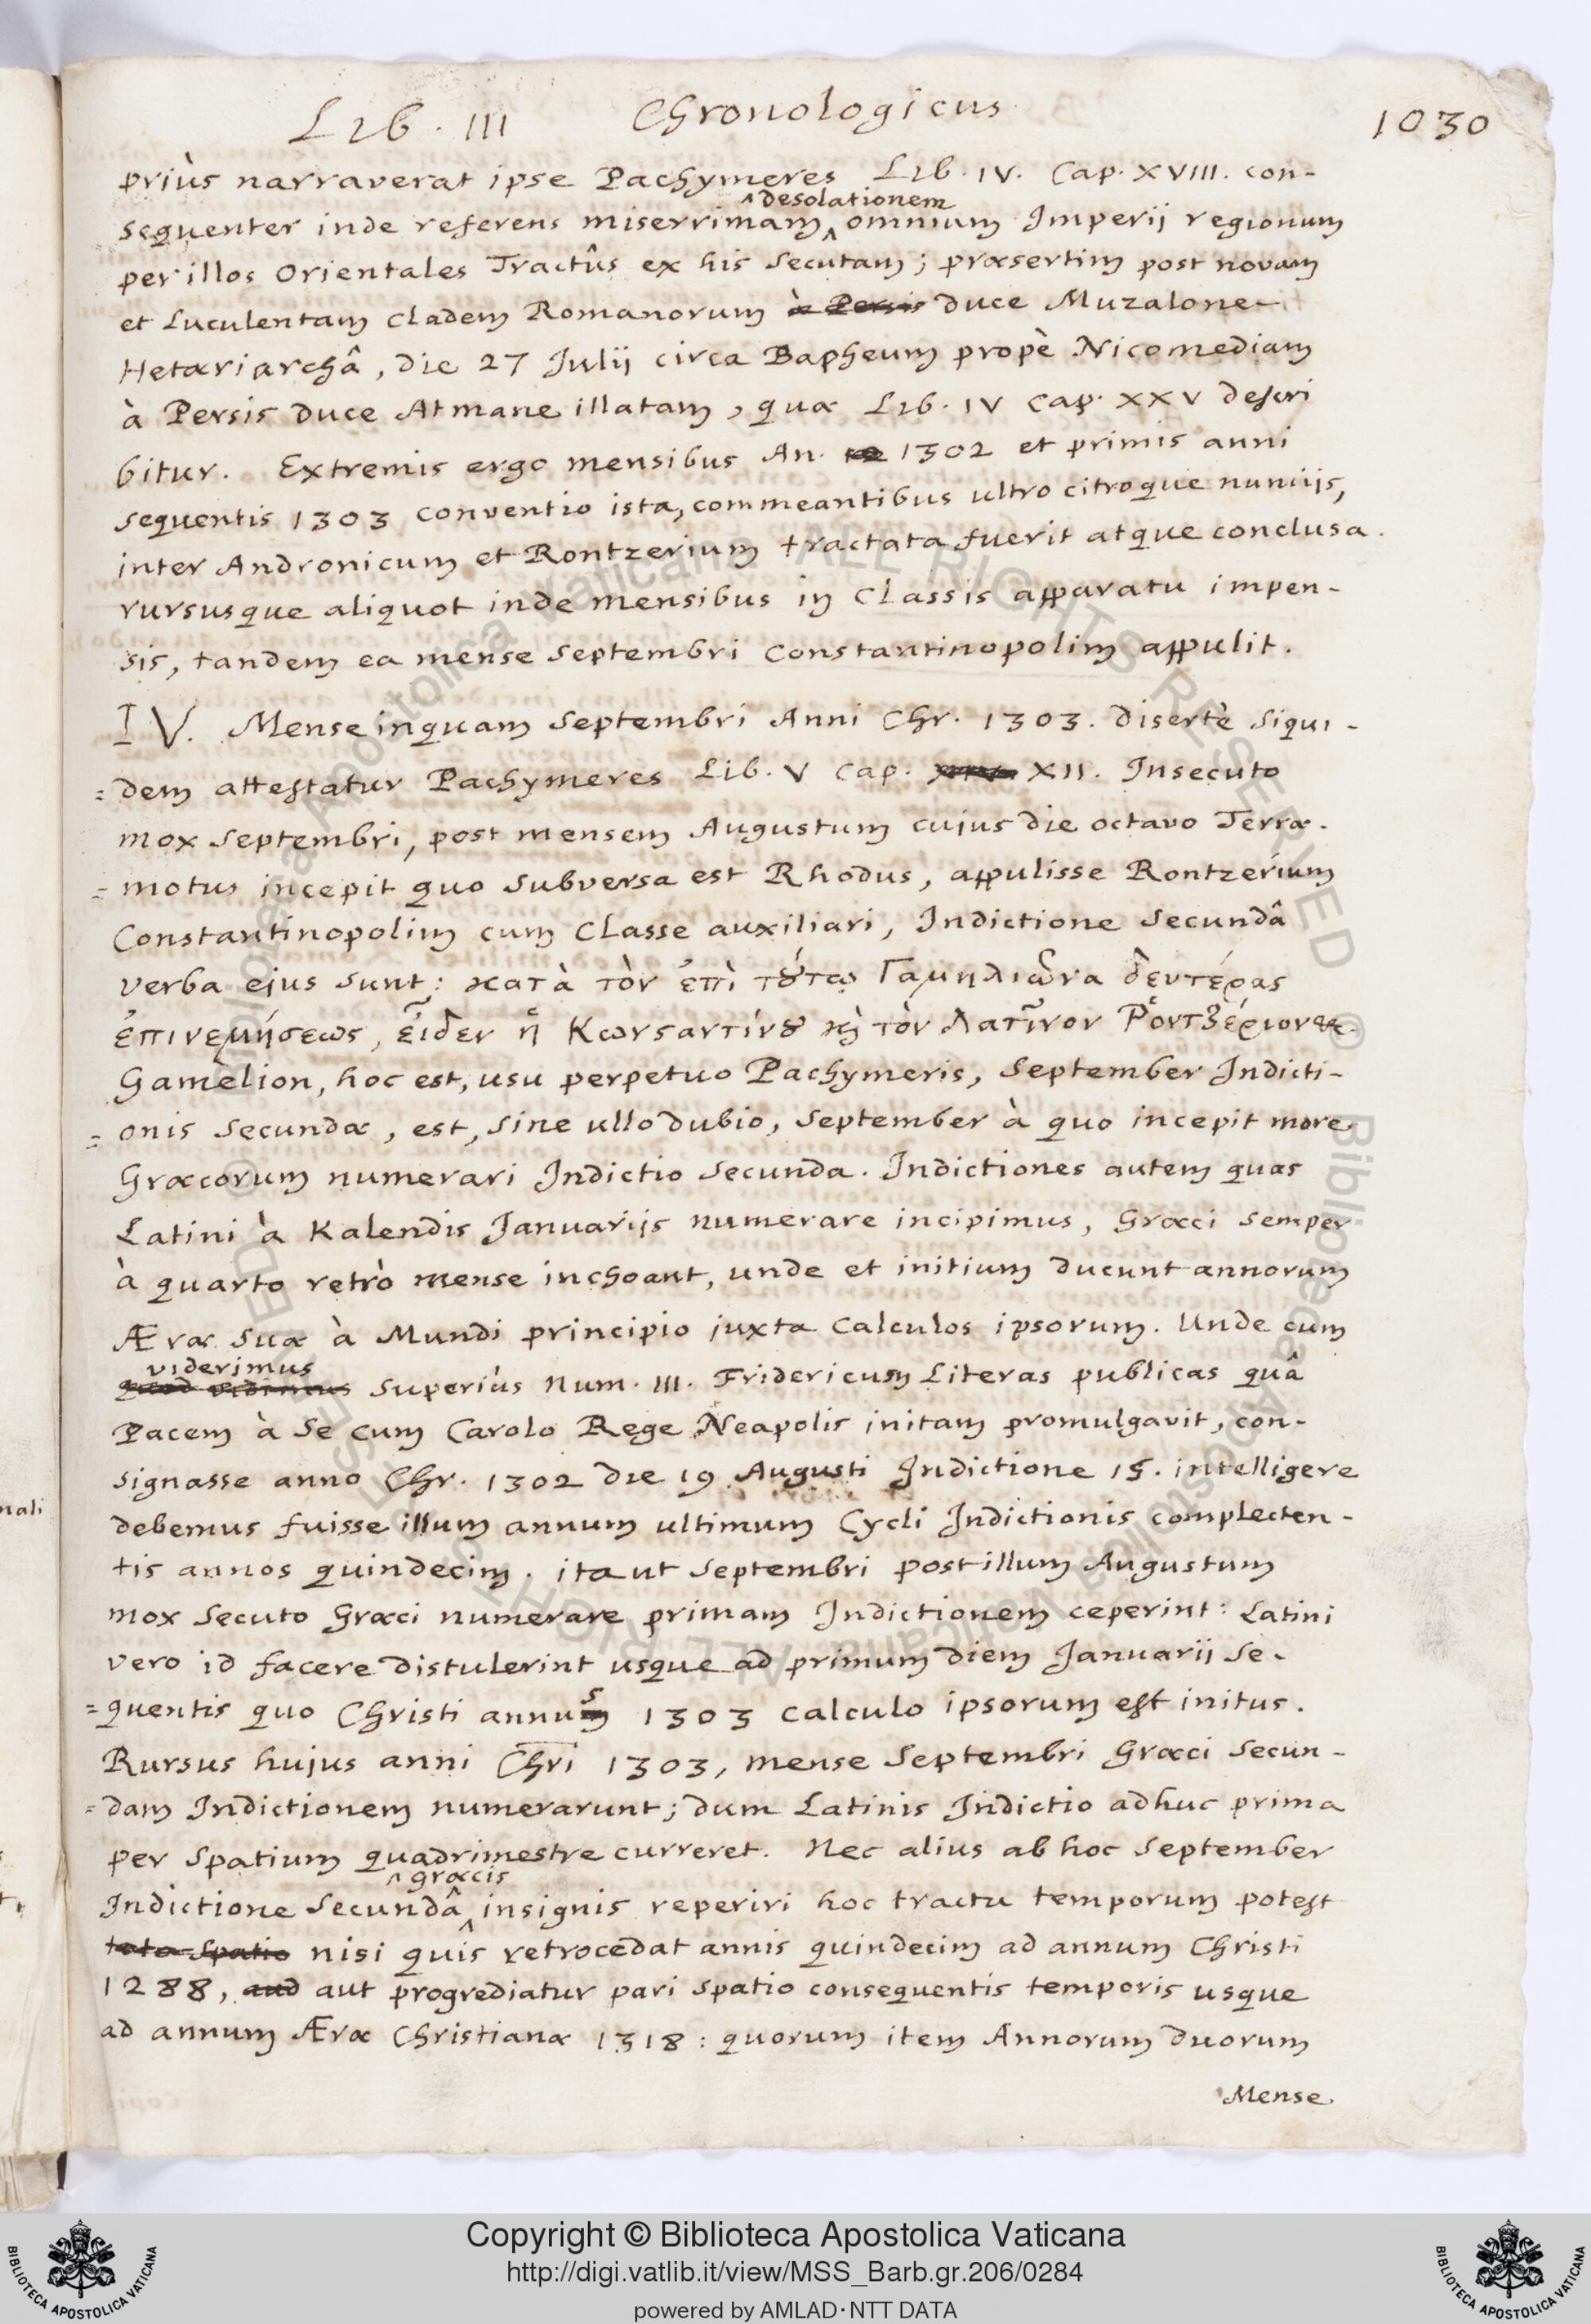 Lib. III Chronologicus 1030
priùs narraverat ipse Pachymeres Lib. IV. Cap. XVIII. con-
^desolationem
sequenter inde referens miserrimam ^ omnium Imperij regionum
per illos Orientales Tractûs ex his secutam; præsertim post novam
et Luculentam Cladem Romanorum à Persis duce Muzalone
Hetæriarchâ, die 27 Julij circa Bapheum propè Nicomediam
à Persis duce Atmane illatam, quæ Lib. IV Cap. XXV descri
bitur. Extremis ergo mensibus An. 1302 et primis anni
sequentis 1303 conventio ista, commeantibus ultro citroque nuncijs,
inter Andronicum et Rontzerium tractata fuerit atque conclusa.
rursusque aliquot inde mensibus in Classis apparatu impen-
sis, tandem ea mense Septembri Constantinopolim appulit.
IV. Mense inquam Septembri Anni Chr. 1303. disertè siqui-
=dem attestatur Pachymeres Lib. V Cap. XII. Insecuto
mox Septembri, post mensem Augustum cujus die octavo Terræ.
=motus incepit quo subversa est Rhodus, appulisse Rontzerium
Constantinopolim cum Classe auxiliari, Indictione Secundâ
verba ejus sunt: κατὰ τὸν ἐπὶ τȣ́τῳ Γαμηλιῶνα δευτέρας
ἐπινεμήσεως, εἶδεν ἡ Κωνσαντίνȣ ϗ̀ τὸν Λατῖνον Ῥοντζέριον
Gamelion, hoc est, usu perpetuo Pachymeris, September Indicti-
=onis secundæ, est, sine ullo dubio, September à quo incepit more
Græcorum numerari Indictio Secunda. Indictiones autem quas
Latini à Kalendis Januarijs numerare incipimus, Græci semper
à quarto retrò mense inchoant, unde et initium ducunt annorum
Æræ suæ à Mundi principio juxta Calculos ipsorum. Unde cum
viderimus
quod vidimus superiùs Num. III. Fridericum Literas publicas quâ
Pacem à se cum Carolo Rege Neapolis initam promulgavit, con-
signasse anno Chr. 1302 die 19 Augusti Indictione 15. intelligere
debemus fuisse illum annum ultimum Cycli Indictionis complecten-
tis annos quindecim. ita ut Septembri post illum Augustum
mox secuto Græci numerare primam Indictionem ceperint: Latini
vero id facere distulerint usque ad primum diem Januarij se-
=quentis quo Christi annus 1303 calculo ipsorum est initus.
Rursus hujus anni Chri 1303, mense Septembri Græci secun-
=dam Indictionem numerarunt; dum Latinis Indictio adhuc prima
per spatium quadrimestre curreret. Nec alius ab hoc September
^græcis
Indictione Secundâ ^ insignis reperiri hoc tractu temporum potest
toto spatio nisi quis retrocedat annis quindecim ad annum Christi
1288, aud aut progrediatur pari spatio consequentis temporis usque
ad annum Æræ Christianæ 1318: quorum item Annorum duorum
Mense
nali
Copyright © Biblioteca Apostolica Vaticana
http://digi.vatlib.it/view/MSS_Barb.gr.206/0284
powered by AMLAD·NTT DATA
BIBLIOTECA APOSTOLICA VATICANA
BIBLIOTECA APOSTOLICA VATICANA